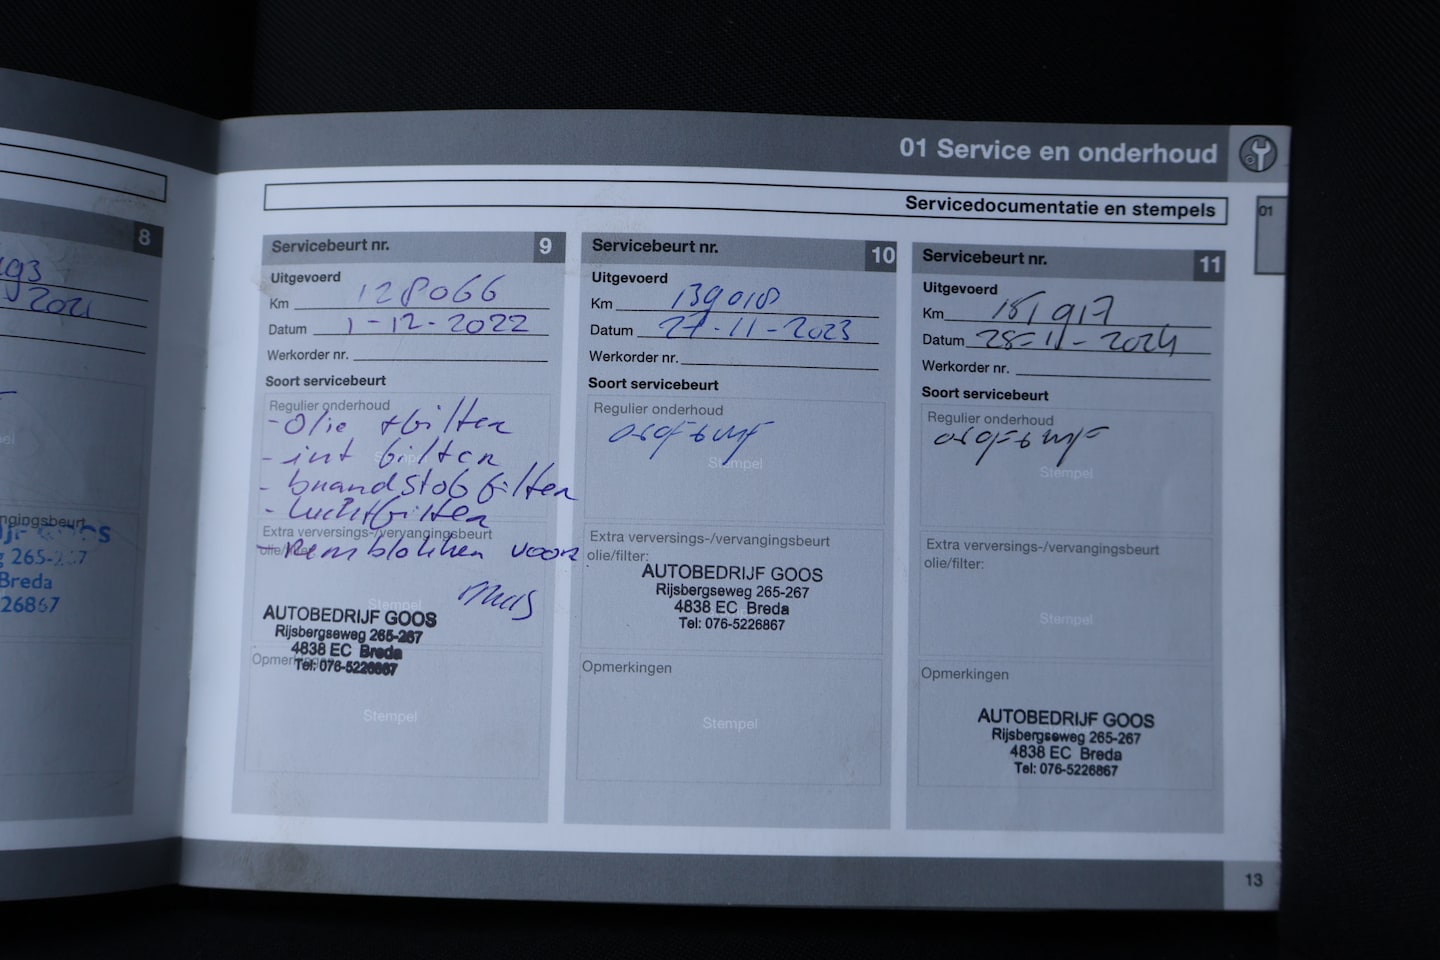 01 Service en onderhoud
Servicedocumentatie en stempels
01
8
2021
ngingsbeurt
265-267
Breda
26867
Servicebeurt nr. 9
Uitgevoerd
Km 128066
Datum 1-12-2022
Werkorder nr.
Soort servicebeurt
Regulier onderhoud
- Olie + filter
- int filter
- brandstof filter
- luchtfilter
Extra verversings-/vervangingsbeurt
olie/filter:
- Remblokken voor
Stempel
AUTOBEDRIJF GOOS
Rijsbergseweg 265-267
4838 EC Breda
Tel: 076-5226867
Opmerkingen
Stempel
Servicebeurt nr. 10
Uitgevoerd
Km 139018
Datum 27-11-2023
Werkorder nr.
Soort servicebeurt
Regulier onderhoud
Stempel
Extra verversings-/vervangingsbeurt
olie/filter:
AUTOBEDRIJF GOOS
Rijsbergseweg 265-267
4838 EC Breda
Tel: 076-5226867
Opmerkingen
Stempel
Servicebeurt nr. 11
Uitgevoerd
Km 151917
Datum 28-11-2024
Werkorder nr.
Soort servicebeurt
Regulier onderhoud
Stempel
Extra verversings-/vervangingsbeurt
olie/filter:
Stempel
Opmerkingen
AUTOBEDRIJF GOOS
Rijsbergseweg 265-267
4838 EC Breda
Tel: 076-5226867
13